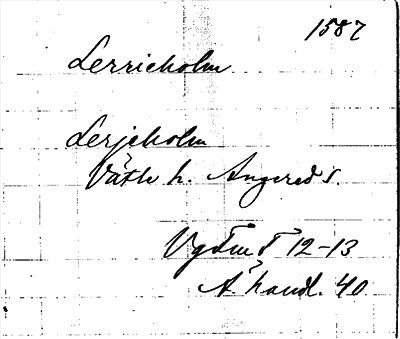 1587
Lerrieholm
Lerjeholm
Vätle h. Angereds s.
Vg Fm T 12-13
Ä. hand. 40